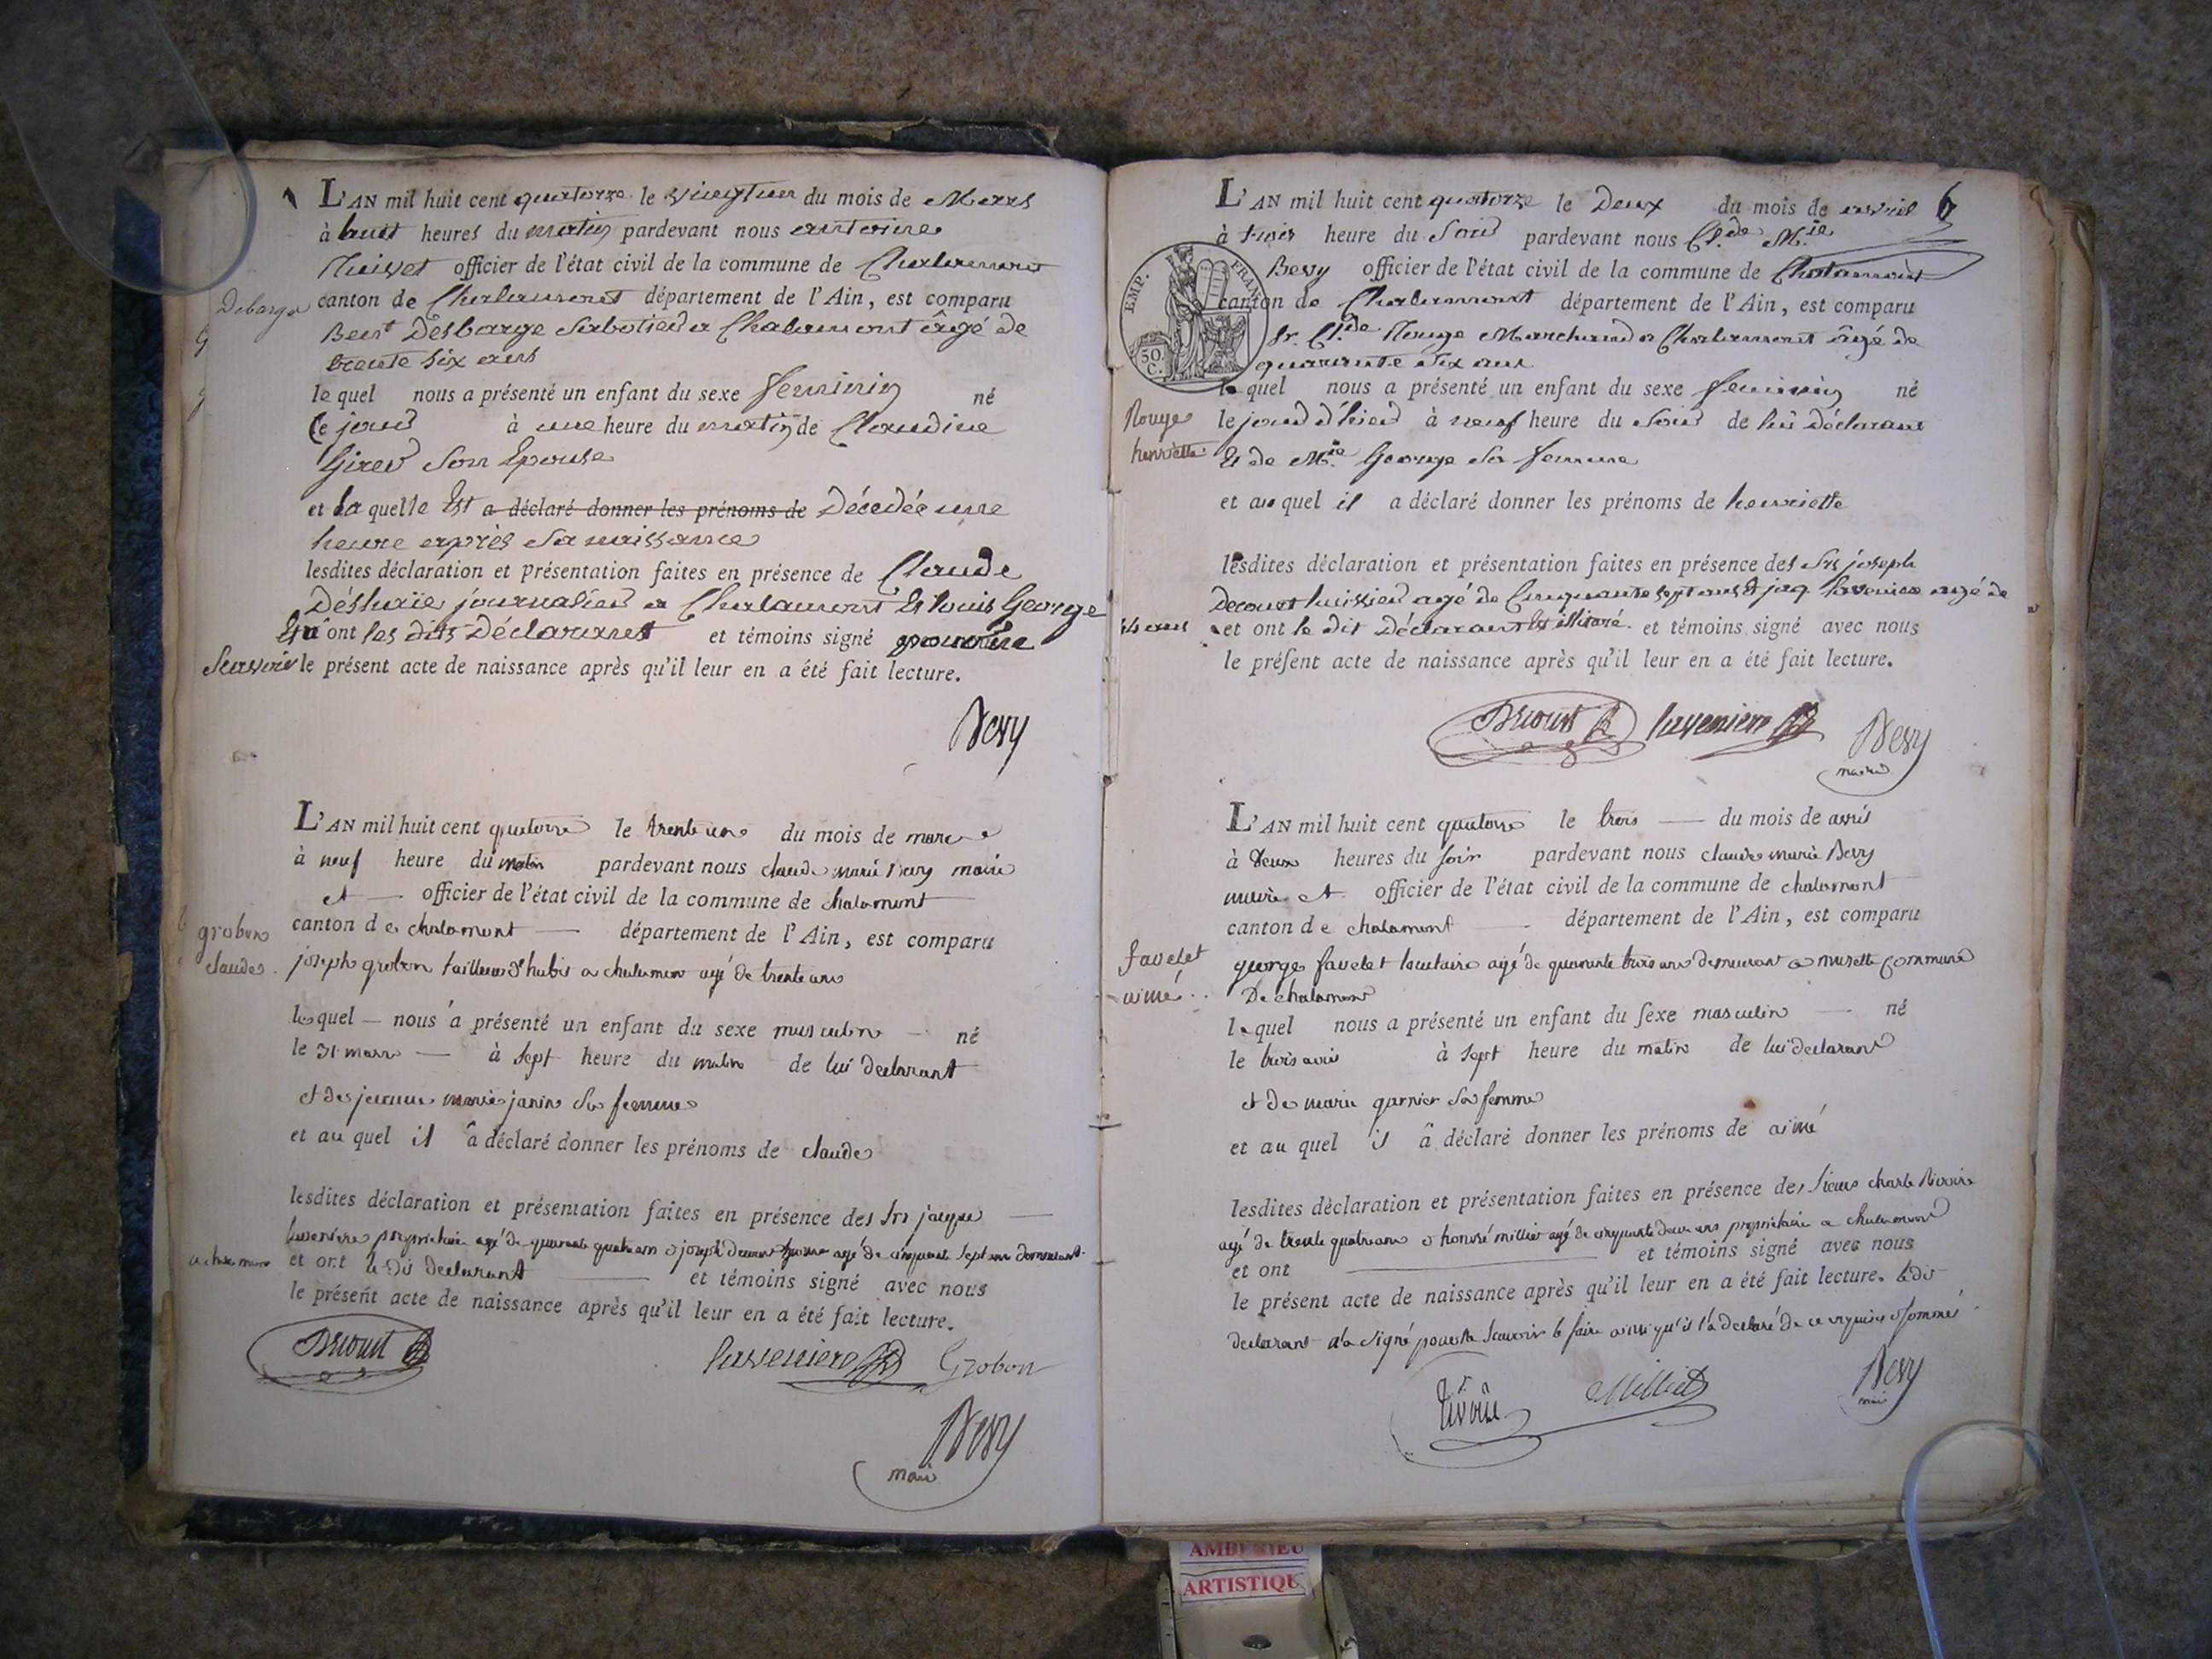 L'AN mil huit cent quatorze le vingt un du mois de Mars
à huit heures du matin pardevant nous antoine
officier de l'état civil de la commune de Chalamont
Debarge
canton de Chalamont département de l'Ain, est comparu
Ben.t Desbarge Sabotier a Chalamont âgé de
trente six ans
le quel nous a présenté un enfant du sexe feminin né
Ce jour à une heure du matin de Claudine
son Epouse
et la quelle Est a déclaré donner les prénoms de Décedée une
heure après sa naissance
lesdites déclaration et présentation faites en présence de Claude
journalier a Chalamont Et louis George
Et n'ont les dits Déclarants et témoins signé pour ne
Scavoir le présent acte de naissance après qu'il leur en a été fait lecture.
Bevy
L'AN mil huit cent quatorze le trente un du mois de mars
à neuf heure du matin pardevant nous claude marie Bevy maire
et officier de l'état civil de la commune de chalamont
grobon
claude.
canton de chalamont département de l'Ain, est comparu
joseph grobon tailleur d'habit a chalamont agé de trente ans
le quel nous a présenté un enfant du sexe masculin né
le 31 mars à sept heure du matin de lui declarant
et de jeanne marie janin sa femme
et au quel il a déclaré donner les prénoms de claude
lesdites déclaration et présentation faites en présence des Srs jacque
laveniere proprietaire agé de quarante quatre ans & joseph agé de cinquante sept ans demeurant
a chalamont et ont le dit declarant et témoins signé avec nous
le présent acte de naissance après qu'il leur en a été fait lecture.
Decourt laveniere Grobon
Bevy
maire
6
L'AN mil huit cent quatorze le Deux du mois de avril
à trois heure du Soir pardevant nous Cl.de M.ie
Bevy officier de l'état civil de la commune de Chalamont
EMP. FRAN.
50.
C.
canton de Chalamont département de l'Ain, est comparu
Sr. Cl.de Rouge Marchand a Chalamont âgé de
quarante six ans
le quel nous a présenté un enfant du sexe feminin né
Rouge
henriette
le jour d'hier à neuf heure du soir de lui Déclarant
Et de M.ie George sa femme
et au quel il a déclaré donner les prénoms de henriette
lesdites déclaration et présentation faites en présence des Srs joseph
Decourt huissier agé de Cinquante sept ans Et jaq. laveniere agé de
44 ans et ont le dit Déclarant Est illitaré et témoins signé avec nous
le présent acte de naissance après qu'il leur en a été fait lecture.
Decourt laveniere Bevy
maire
L'AN mil huit cent quatorze le trois du mois de avril
à deux heures du soir pardevant nous claude marie Bevy
maire et officier de l'état civil de la commune de chalamont
canton de chalamont département de l'Ain, est comparu
favelet
aimé
george favelet locataire agé de quarante trois ans demeurant a commune
De chalamont
le quel nous a présenté un enfant du sexe masculin né
le trois avril à sept heure du matin de lui declarant
et de marie garnier sa femme
et au quel il a déclaré donner les prénoms de aimé
lesdites dèclaration et présentation faites en présence des sieurs charle Rivoire
agé de trente quatre ans & honoré milliet agé de cinquante deux ans proprietaire a chalamont
et ont et témoins signé avec nous
le présent acte de naissance après qu'il leur en a été fait lecture. le dit
declarant n'a signé pour ne scavoir le faire ainsi qu'il l'a declaré de ce requis & sommé
Rivoire Milliet Bevy
maire
AMBERIEU
ARTISTIQU